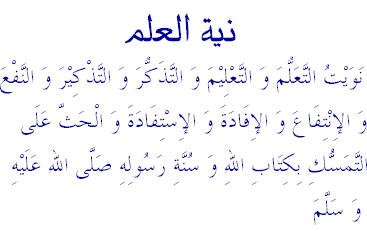 نية العلم
نَوَيْتُ التَّعَلُّمَ وَ التَّعْلِيْمَ وَ التَّذَكُّرَ وَ التَّذْكِيْرَ وَ النَّفْعَ
وَ الإِنْتِفَاعَ وَ الإِفَادَةَ وَ الإِسْتِفَادَةَ وَ الْحَثَّ عَلَى
التَّمَسُّكِ بِكِتَابِ اللهِ وَ سُنَّةِ رَسُولِهِ صَلَّى الله عَلَيْهِ
وَ سَلَّمَ